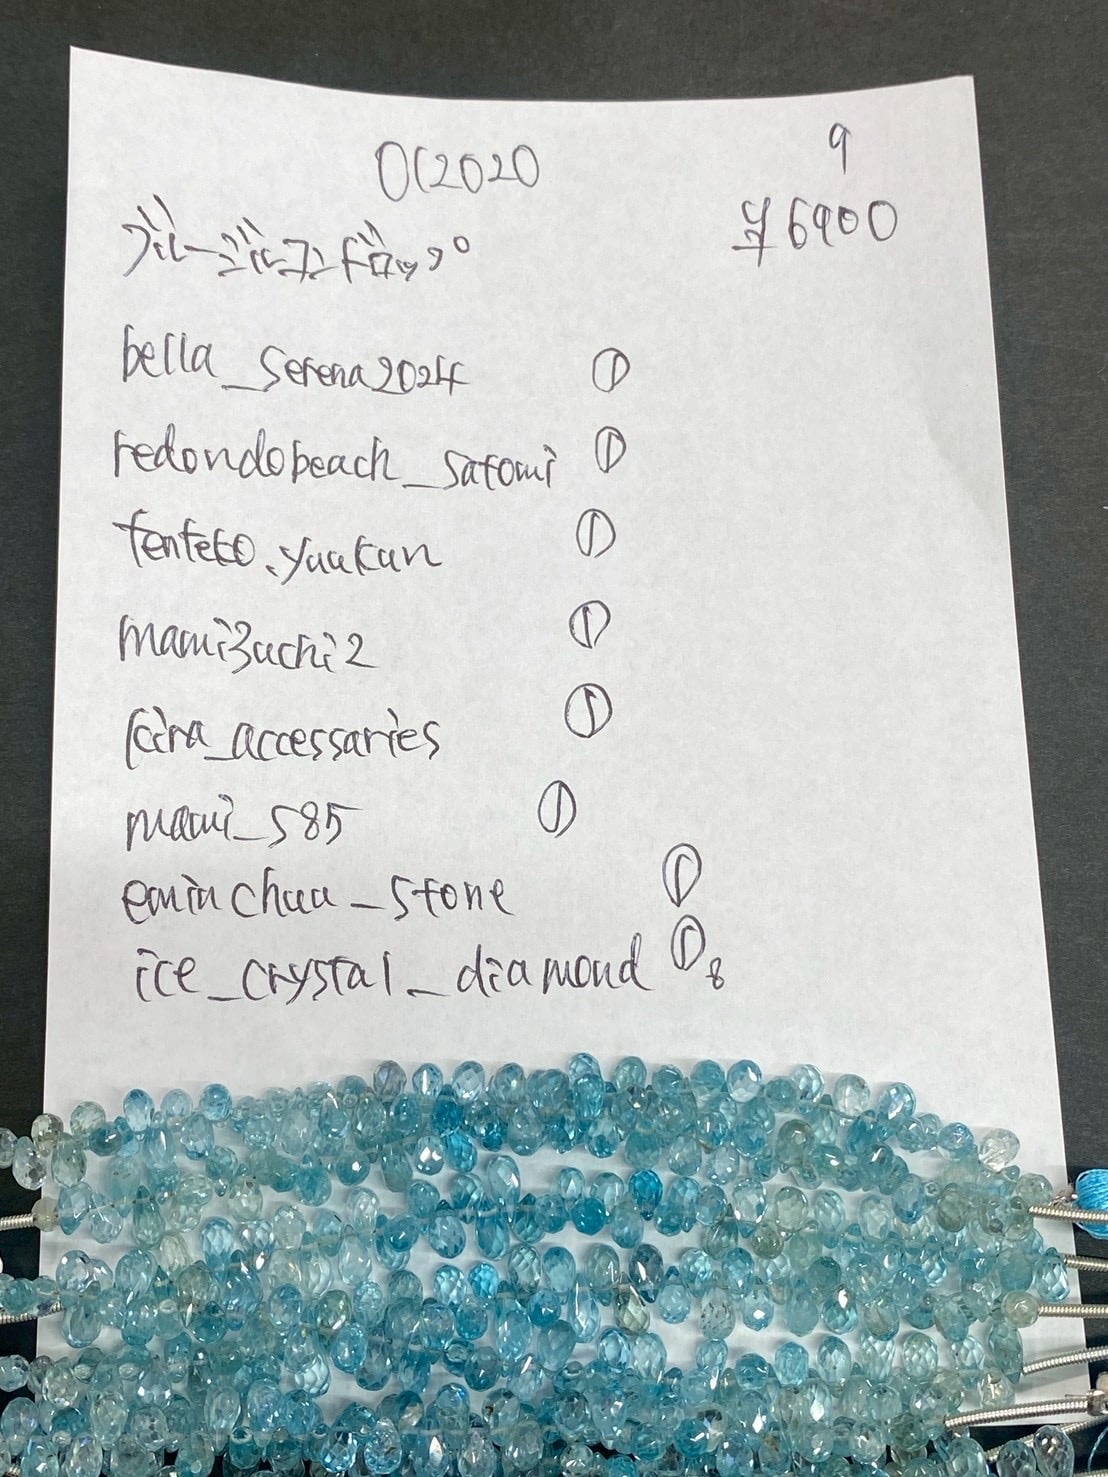 OC2020
9
¥6900
ブルージルコンドロップ
bella_serena2024 ①
redondobeach_satomi ①
tenteko.yuukun ①
mami3uchi2 ①
kira_accessaries ①
mami_s85 ①
eminchuu_stone ①
ice_crystal_diamond ① 8